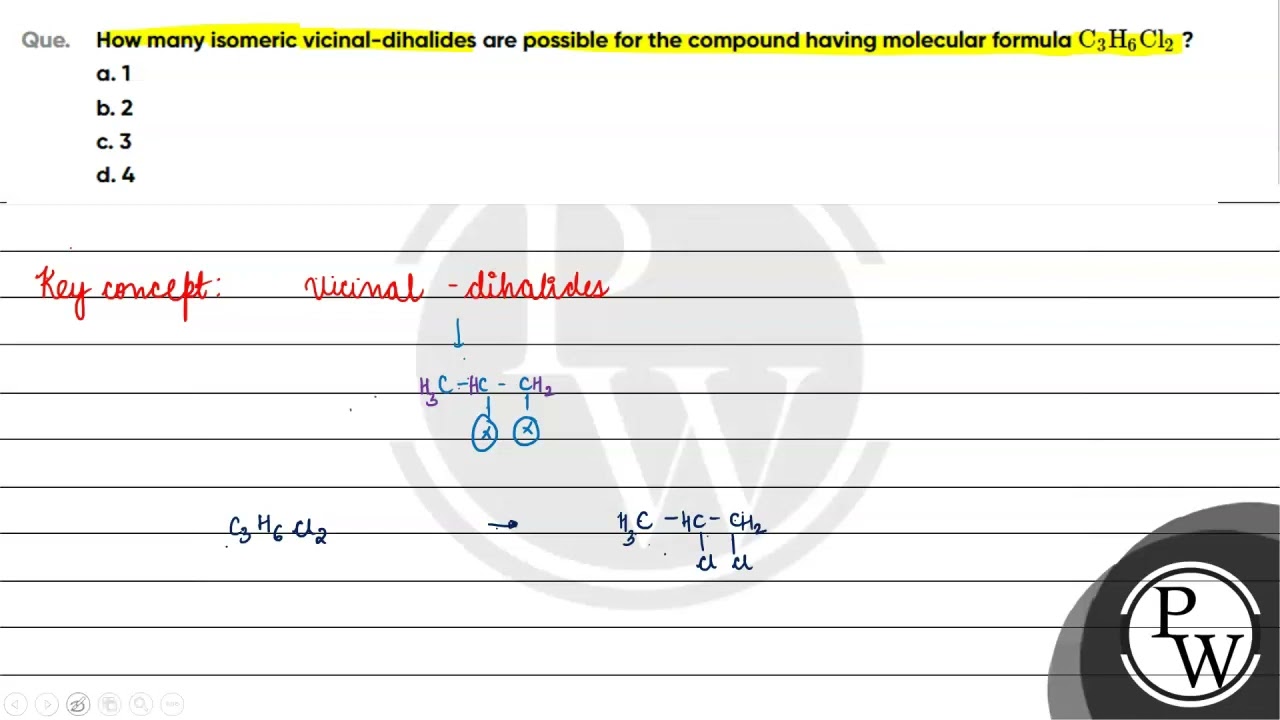 Que. How many isomeric vicinal-dihalides are possible for the compound having molecular formula C₃H₆Cl₂ ?
a. 1
b. 2
c. 3
d. 4
Key concept: Vicinal - dihalides
↓
H₃C - HC - CH₂
X X
C₃H₆Cl₂ → H₃C - HC - CH₂
Cl Cl
PW
PW